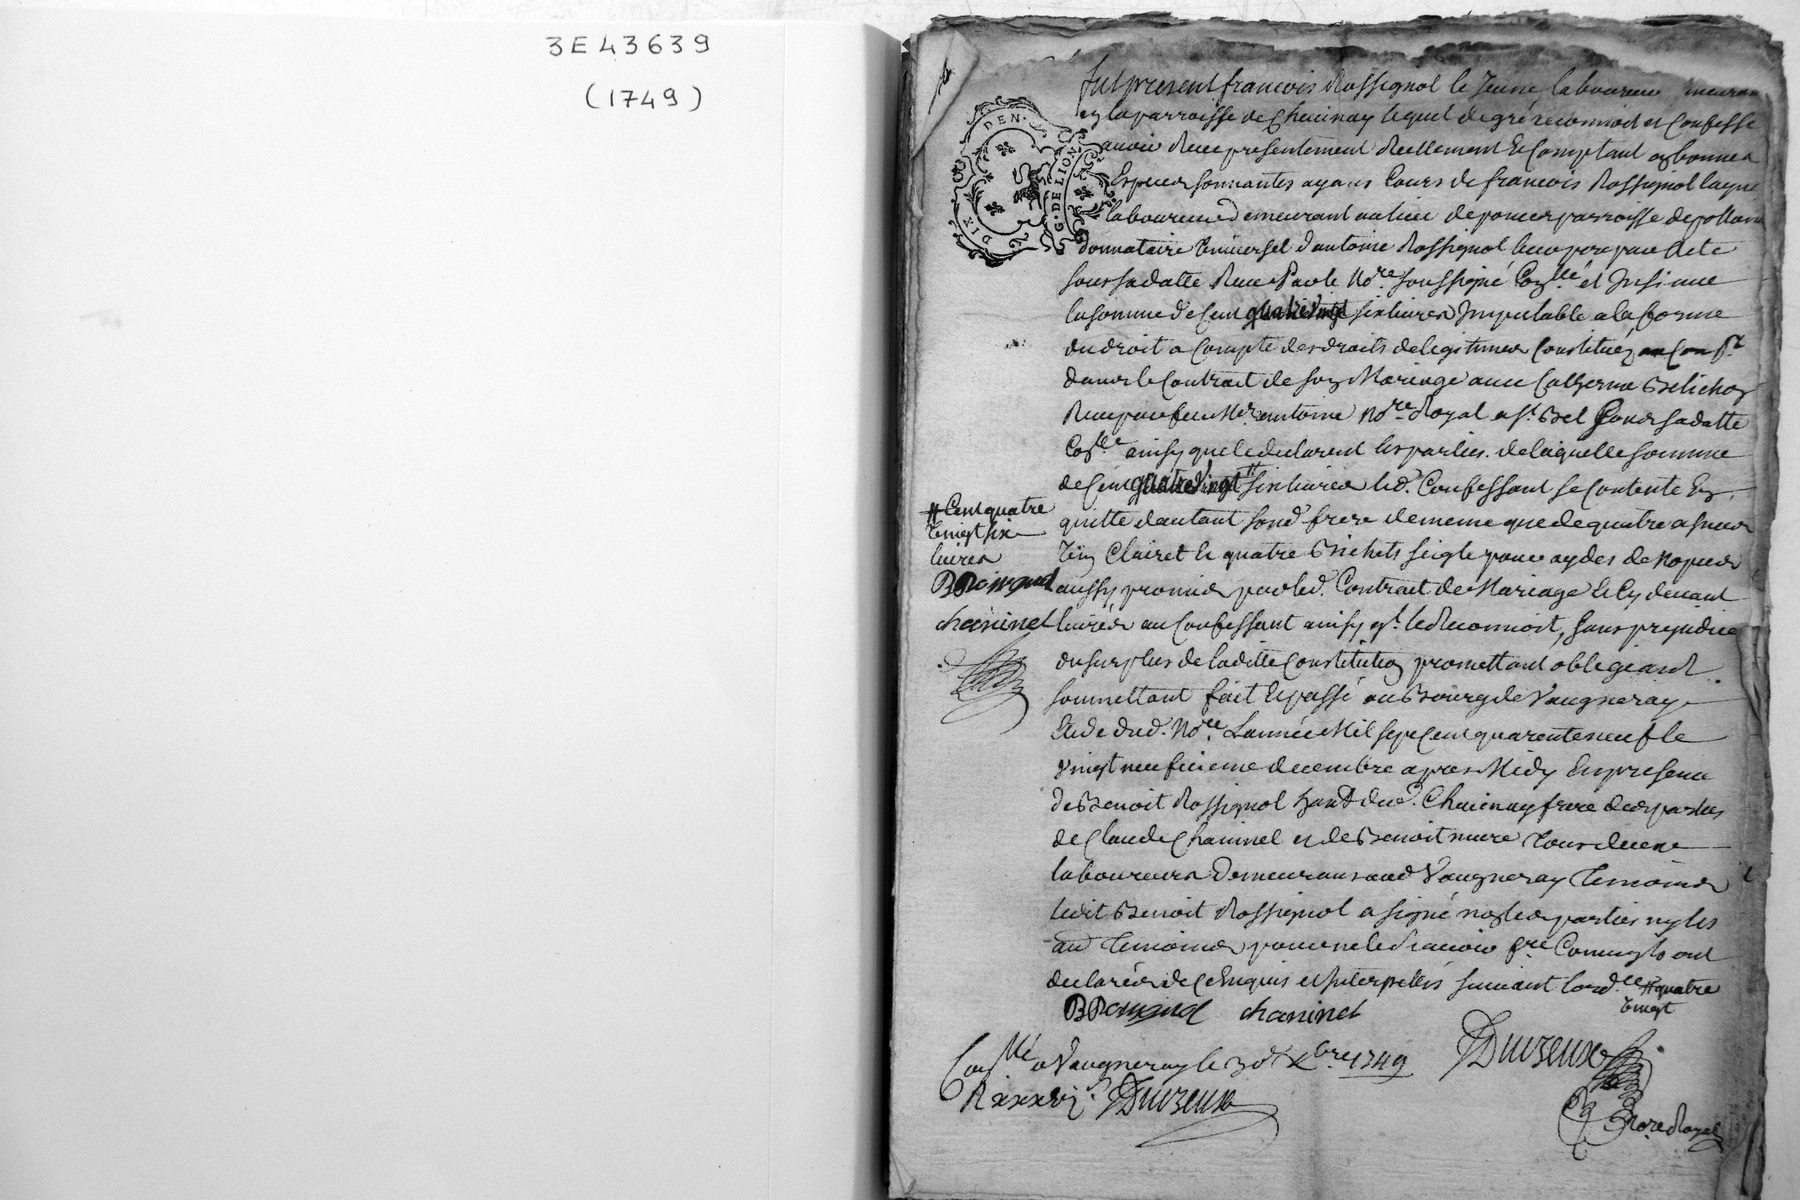 3E43639
(1749)
DIX DEN.
G. DE LION
Fut present francois Rossignol le Jeune laboureur meurant
en la parroisse de Chevinay lequel de gré reconnoit et Confesse
avoir Receu presentement Reellement Et Comptant en bonnes
Especes sonnantes ayans Cours de francois Rossignol layné
laboureur demeurant au lieu de parroisse de pollionay
donnataire Universel dantoine Rossignol leur pere par acte
sous sa datte Receu Par le Nore. soussigné Con.llé et Insinué
la somme de Cent quatre vingt six livres Imputable a la forme
du droit a Compte des droits de legitimes Constitués
dans le Contrat de son Mariage avec Catherine Belichon
Receu par feu Me. antoine Nore. Royal a St. Bel sous sa datte
Con.llé ainsy que le declarent les parties. de laquelle somme
de Cent quatre vingt six livres led. Confessant se Contente En
quitte dautant sond. frere de meme que de quatre asnées
Vin Clairet et quatre Bichets seigle pour aydes de Nopces
aussy promises par led. Contrat de Mariage et Cy devant
livrés au Confessant ainsy qu'. le Reconnoit, sans prejudice
du surplus de ladite Constitution promettant obligeant
soumettant fait et passé au Bourg de Vaugneray
Etude dud. Nore. Lannée Mil sept Cent quarente neuf le
vingt neuficieme decembre apres Midy En presence
de Benoit Rossignol hant dud. Chevinay frere des parties
de Claude Chaninel et de Benoit mure tous deux
laboureurs demeurans aud Vaugneray temoins
ledit Benoit Rossignol a signé non les parties ny les
au temoins pour ne le scavoir fre Comme ils ont
declarés de Ce Enquis et Interpellés suivant lord.ce # quatre
vingt
# Cent quatre
vingt six
livres
chaninel
chaninel
Duvzeux
Con.llé a Vaugneray le 30e. Xbre. 1749
R xxxvi s. Duvzeux
Nore Royal